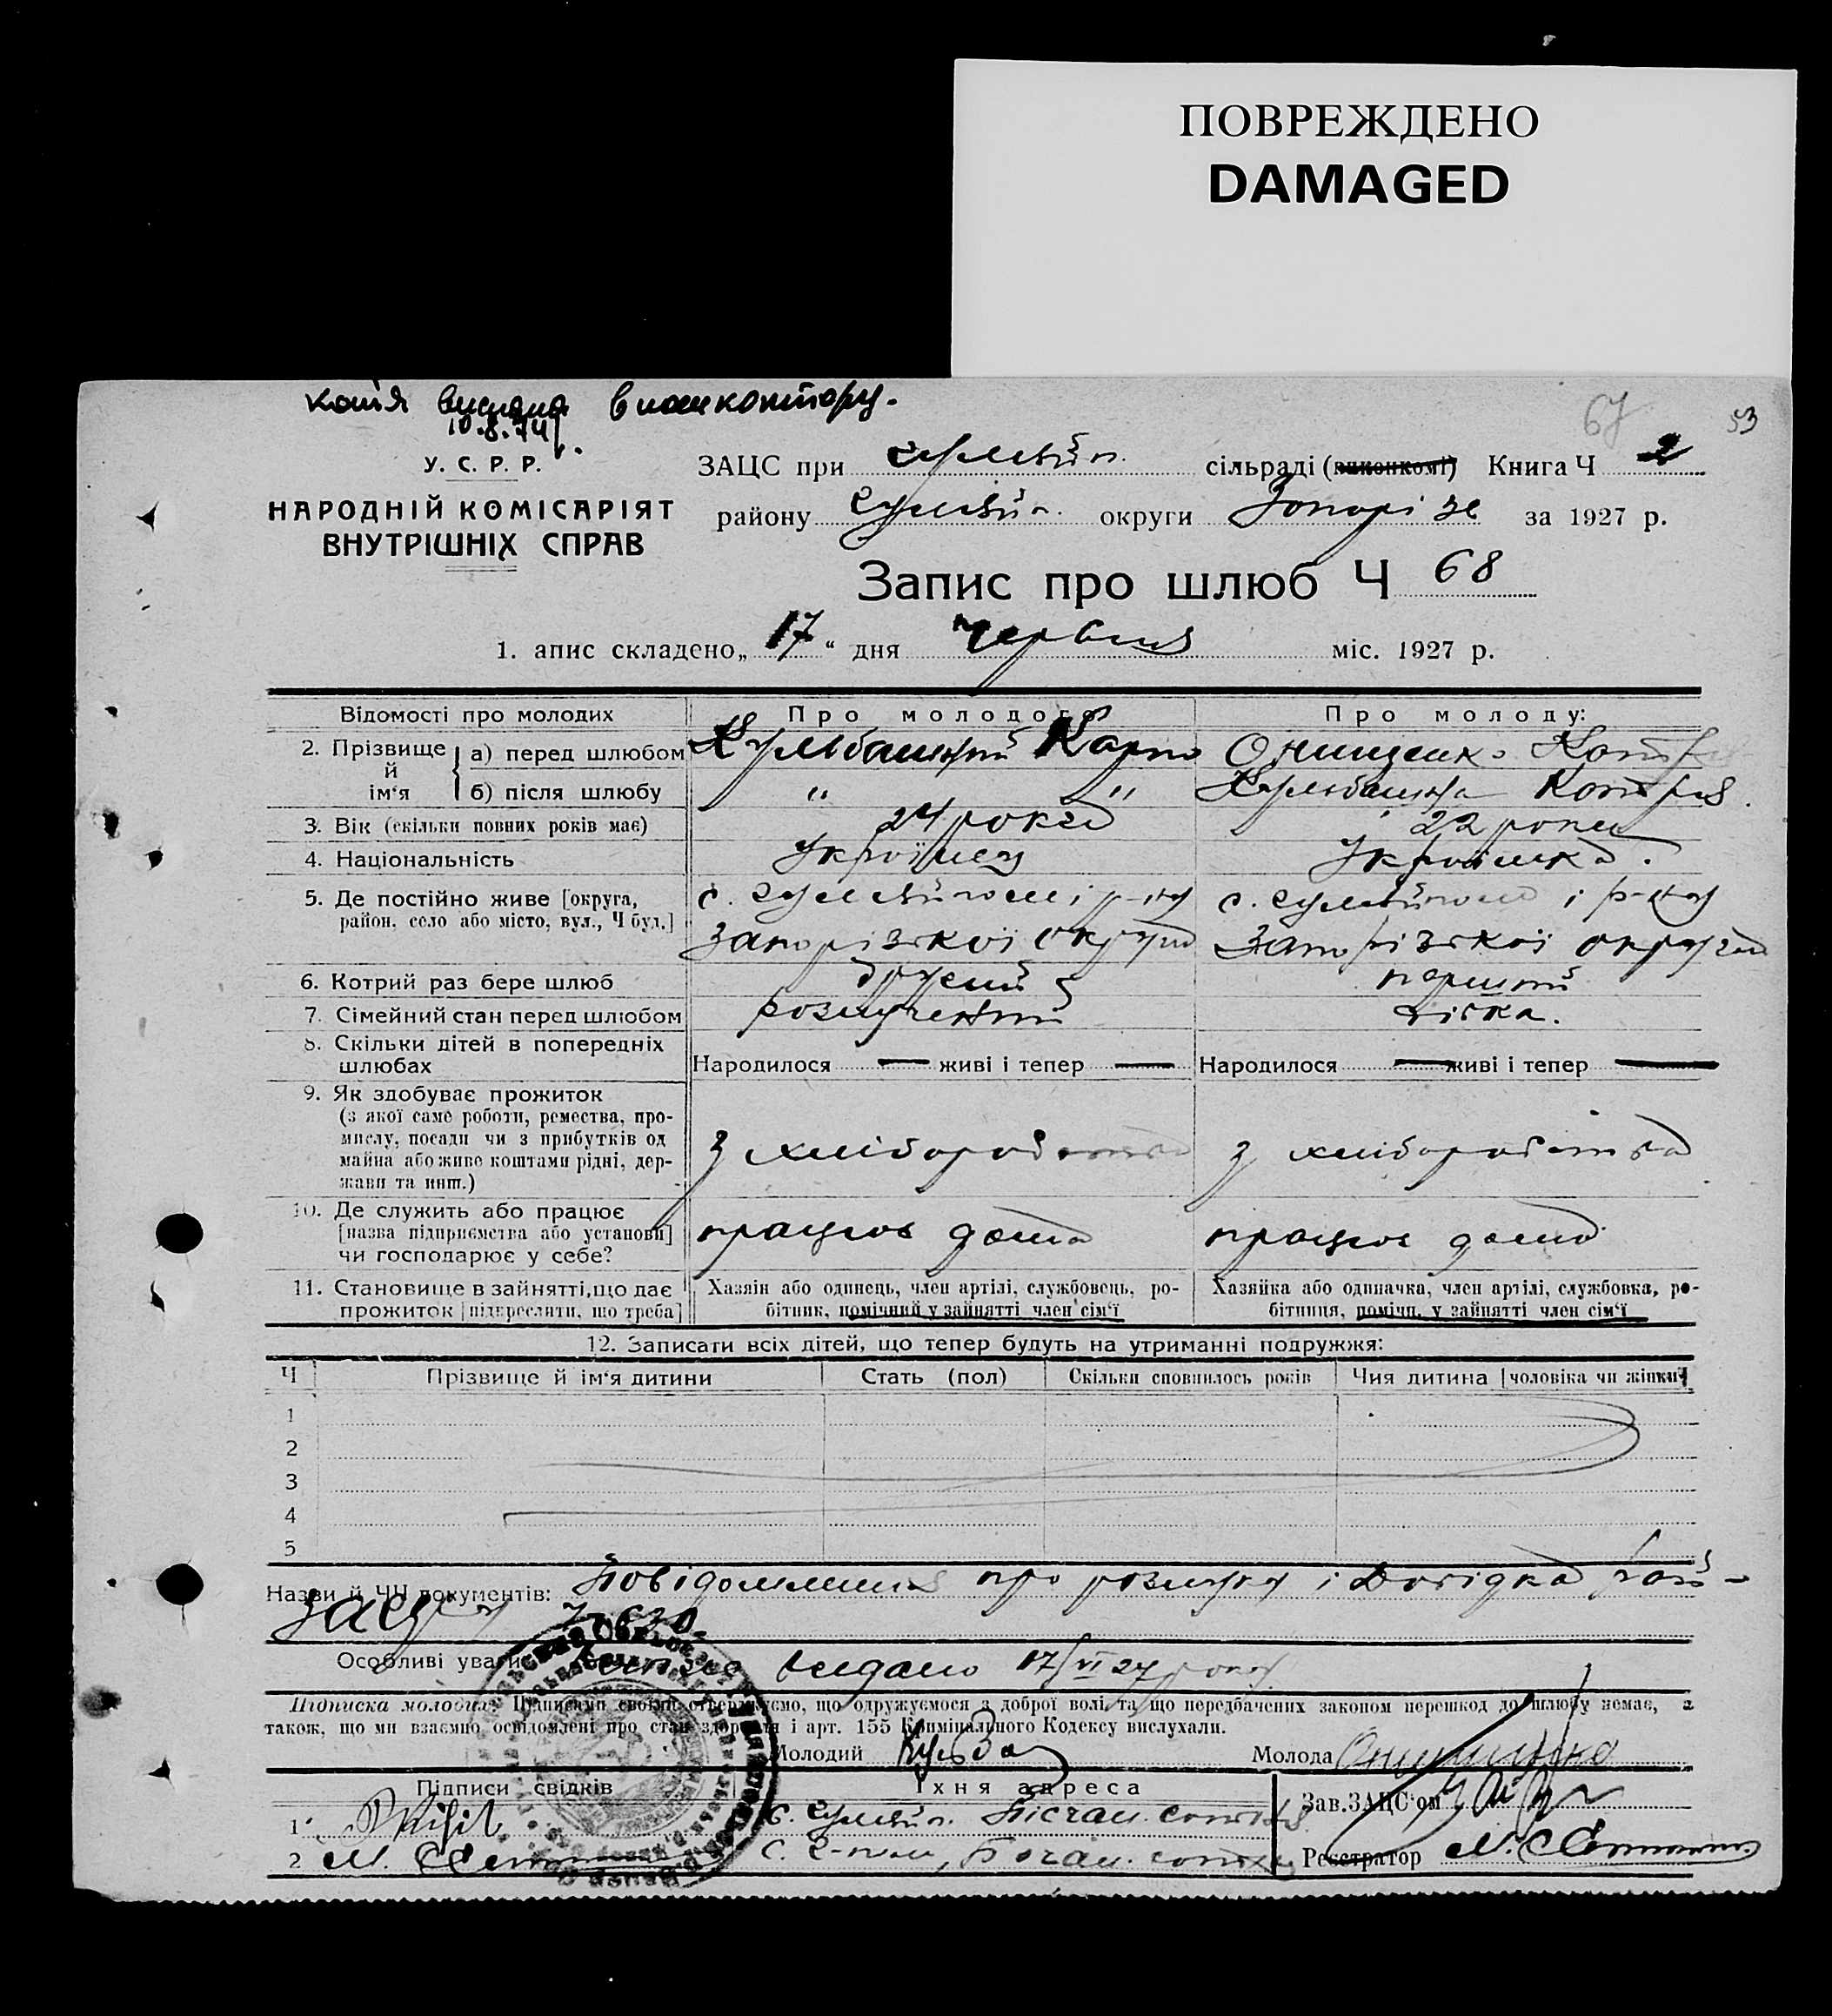 ПОВРЕЖДЕНО
DAMAGED
копія видана
10.8.74 р.
67 53
У. С. Р. Р.
НАРОДНІЙ КОМІСАРІЯТ
ВНУТРІШНІХ СПРАВ
ЗАЦС при Гуляйп. сільраді (виконкомі) Книга Ч 2
району Гуляйп. округи Запоріже за 1927 р.
Запис про шлюб Ч 68
1. апис складено „ 17 “ дня червня міс. 1927 р.
Відомості про молодих Про молодого Про молоду:
2. Прізвище й ім‘я
а) перед шлюбом Кульбацький Карпо Онищенко
б) після шлюбу " " Кульбацька
3. Вік (скільки повних років має) 24 роки 22 роки
4. Національність Українец Українка.
5. Де постійно живе [округа, с. Гуляйполе і р-ну с. Гуляйполе і р-ну
район, село або місто, вул., Ч буд.] Запорізької округи Запорізької округи
6. Котрий раз бере шлюб другий перший
7. Сімейний стан перед шлюбом розлучений дівка.
8. Скільки дітей в попередніх
шлюбах Народилося — живі і тепер — Народилося — живі і тепер —
9. Як здобуває прожиток
(з якої саме роботи, ремества, про-
мислу, посади чи з прибутків од
майна або живе коштами рідні, дер- з хліборобства з хліборобства
жави та инш.)
10. Де служить або працює
[назва підприємства або установи] працює дома працює дома
чи господарює у себе?
11. Становище в зайнятті, що дає Хазяін або одинець, член артілі, службовець, ро- Хазяйка або одиначка, член артілі, службовка, ро-
прожиток [підкреслити, що треба] бітник, помічний у зайнятті член сім‘ї бітниця, помічн. у зайнятті член сім‘ї
12. Записати всіх дітей, що тепер будуть на утриманні подружжя:
Ч Прізвище й ім‘я дитини Стать (пол) Скільки сповнилось років Чия дитина [чоловіка чи жінки]
1
2
3
4
5
Назви й ЧЧ документів: Повідомлення про розлуку і Довідка Рай-
зацсу
Особливі уваги видано 17/VI 27 року
Підписка молодих: Підписами своїми стверджуємо, що одружуємося з доброї волі, та що передбачених законом перешкод до шлюбу немає, а
також, що ми взаємно освідомлені про стан здоров‘я і арт. 155 Кримінального Кодексу вислухали.
Молодий Молода
Підписи свідків Їхня адреса
1 с. Гуляйп. Зав. ЗАЦС‘ом
2 Реєстратор